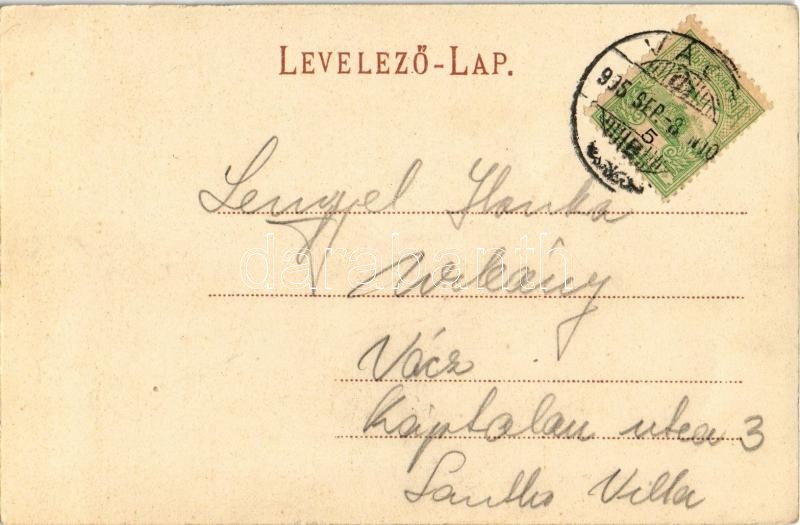 LEVELEZŐ-LAP.
VÁCZ
905 SEP. -8
5
Lengyel Ilonka
Urleány
Vácz
Káptalan utca 3
Santho Villa
darabanth